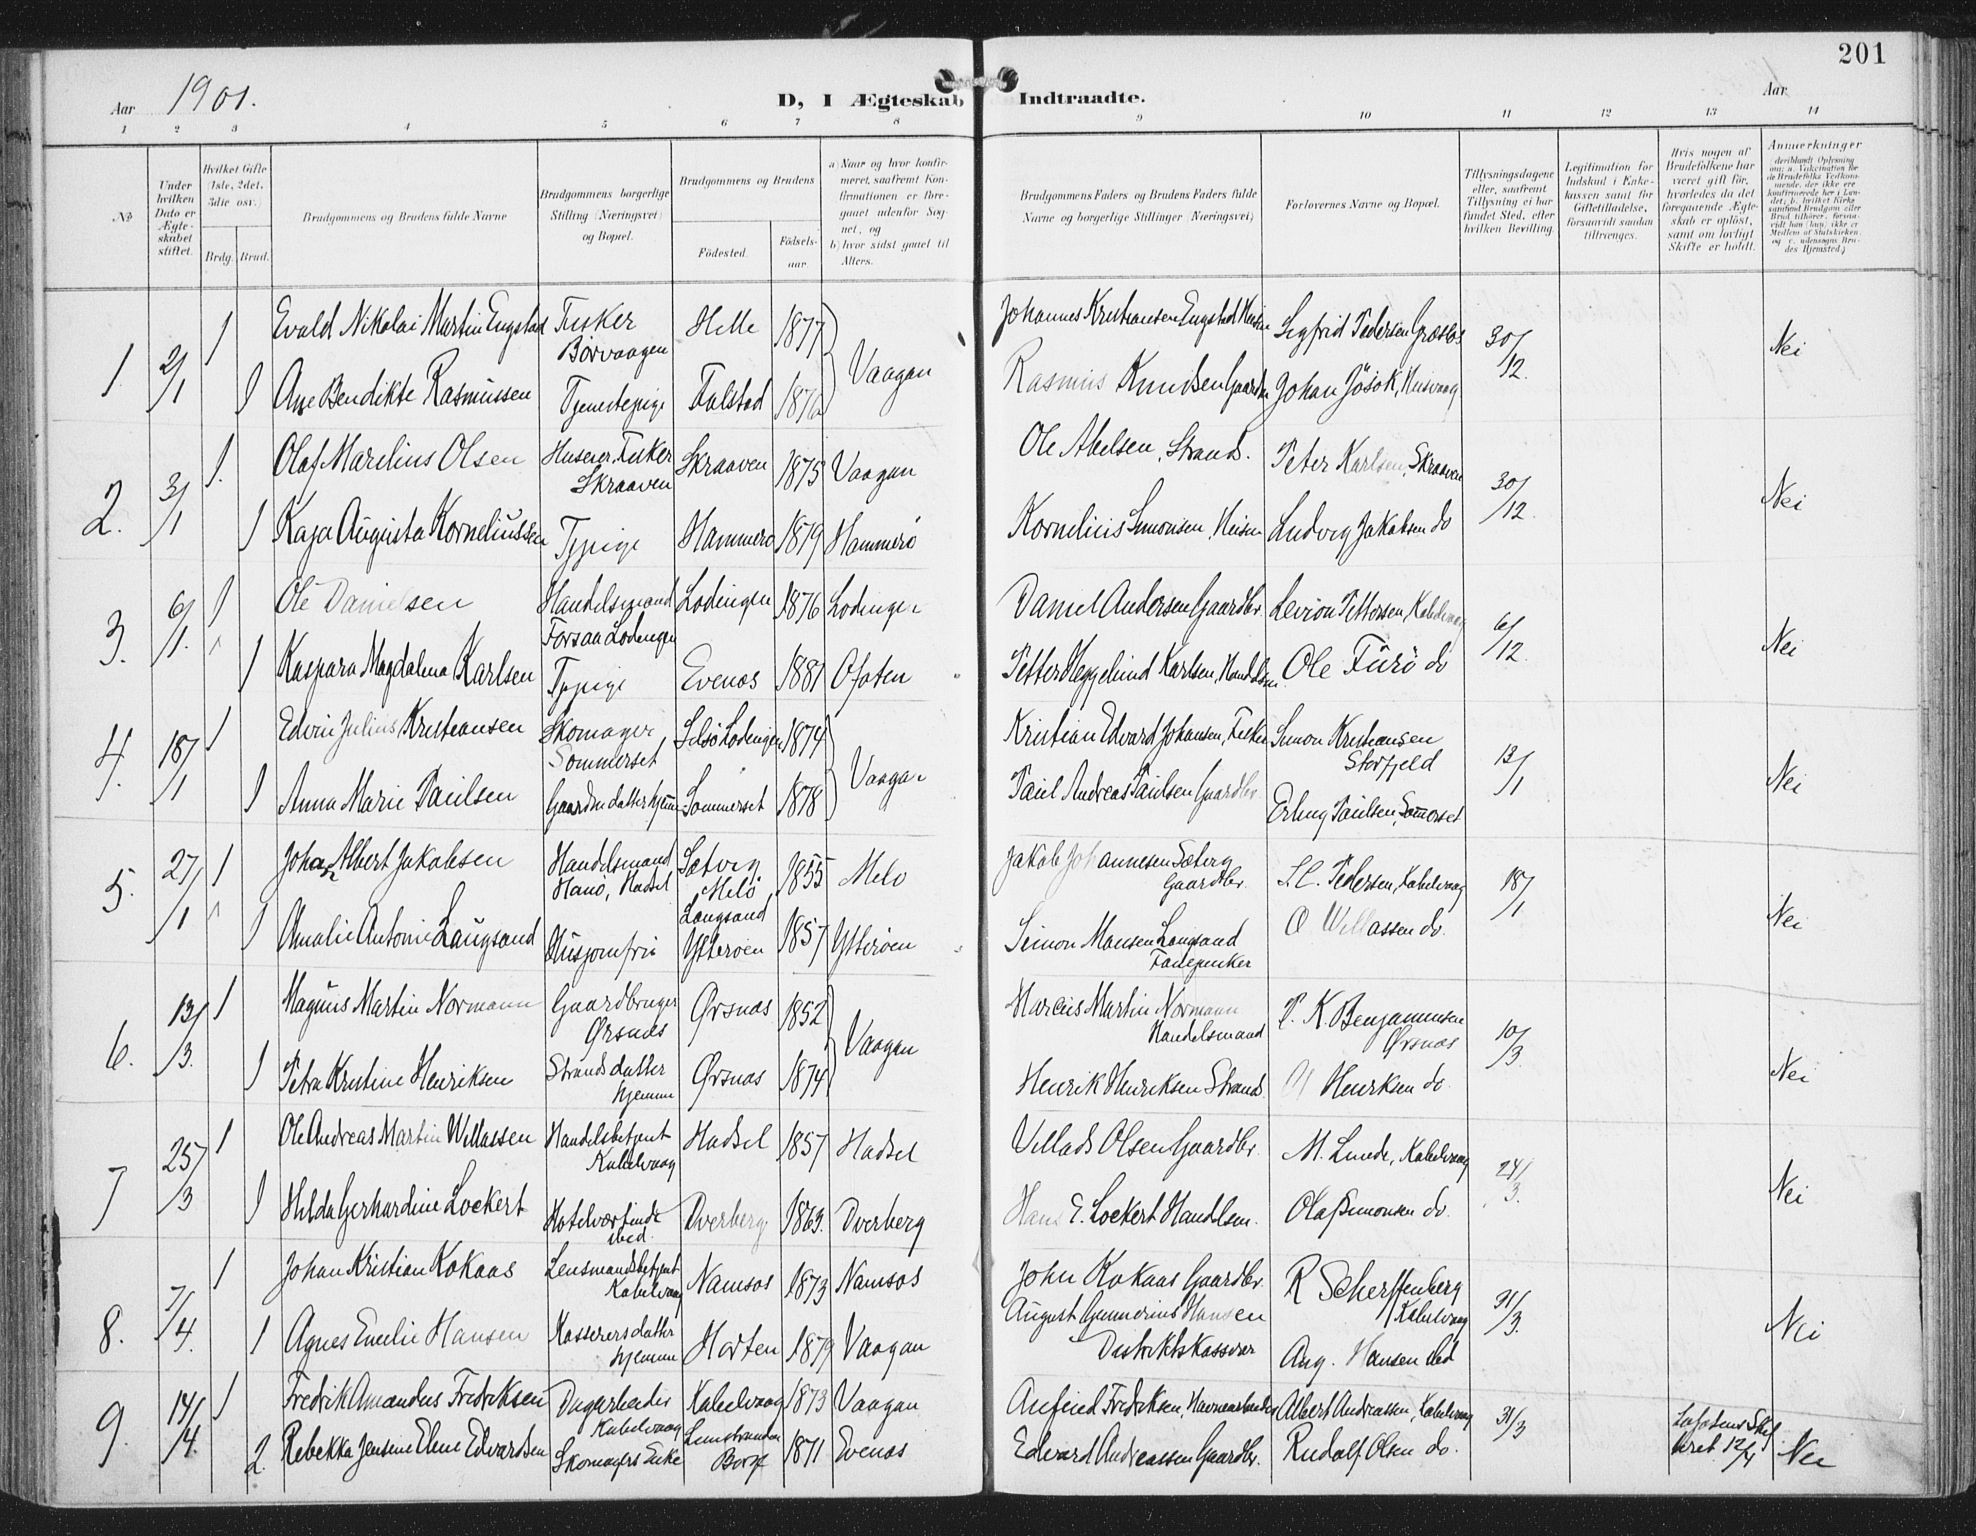 201
Aar 1901.
D, I Ægteskab Indtraadte.
Aar
1 2 3 4 5 6 7 8 9 10 11 12 13 14
No
Under hvilken Dato er Ægteskabet stiftet.
Hvilket Gifte (1ste, 2det, 3die osv.)
Brdg. Brud.
Brudgommens og Brudens fulde Navne
Brudgommens borgerlige Stilling (Næringsvei) og Bopæl.
Brudgommens og Brudens
Födested. Födselsaar
a) Naar og hvor konfirmeret, saafremt Konfirmationen er foregaaet udenfor Sognet, og
b) hvor sidst gaaet til Alters.
Brudgommens Faders og Brudens Faders fulde Navne og borgerlige Stillinger (Næringsvei)
Forlovernes Navne og Bopæl.
Tillysningsdagene eller, saafremt Tillysning ei har fundet Sted, efter hvilken Bevilling.
Legitimation for Indskud i Enkekassen samt for Giftetilladelse, forsaavidt saadan tiltrænges.
Hvis nogen af Brudefolkene har været gift för, hvorledes da det foregaaende Ægteskab er oplöst, samt om lovligt Skifte er holdt.
Anmerkninger
1. 2/1 1 Evald Nikolai Martin Engstad Fisker Børvaagen Helle 1877 Vaagan Johannes Kristiansen Engstad Sigfrid Pedersen 30/12. Nei
1 Ane Bendikte Rasmussen Tjenestepige Falstad Rasmus Knudsen Johan Jösok,
2. 3/1 1. Olaf Marelius Olsen Fisker Skraaven Skraaven 1875 Vaagan Ole Abelsen, Strands. Peter Karlsen, Skraaven 30/12 Nei
1 Kaja Augusta Korneliussen Tjpige Hammerø 1879 Hammerø Kornelius Simonsen, Ludvig Jakobsen do
3. 6/1. 1 Ole Danielsen Handelsmand Forsaa Lødingen Lødingen 1876 Lødingen Daniel Andersen Gaardbr. Pettersen, Kabelvaag 6/12 Nei
1 Kaspara Magdalena Karlsen Tjpige Evenæs 1881 Ofoten Petter Heggelund Karlsen, Handelsm. Ole Furö do
4. 18/1 1 Edvin Julius Kristiansen Skomager Sommerset Lødingen 1874 Vaagan Kristian Edvard Johansen, Fisker Simon Kristiansen Storfjeld 13/1 Nei
1 Anna Marie Paulsen Gaardm datter hjemme Sommerset 1878 Paul Andreas Paulsen Gaardbr. Erling Paulsen, Somerset
5. 27/1 1 Johan Albert Jakobsen Handelsmand Hanø, Hadsel Sætvig Melö 1855 Melö Jakob Johannesen Sætvig Gaardbr. Pedersen, Kabelvaag 18/1 Nei
1 Amalie Antonie Langsand Husjomfru Langsand Ytterøen 1857 Ytterøen Simon Hansen Langsand O Willassen do.
6. 13/3. 1 Magnus Martin Normann Gaardbruger Ørsnæs Ørsnæs 1852 Vaagan Marcus Martin Normann Handelsmand P. K. Benjaminsen Ørsnæs 10/3. Nei
1 Petra Kristine Henriksen Strands datter hjemme Ørsnæs 1874 Henrik Henriksen Strands. Henriksen do.
7 25/3 1 Ole Andreas Martin Willassen Handelsbetjent Kabelvaag Hadsel 1857 Hadsel Villads Olsen Gaardbr. M. Lunde, Kabelvaag 24/3. Nei
1 Hilda Gerhardine Lockert Hotelværtinde sted. Dverberg 1863. Dverberg Hans E. Lockert Handelsm. Olaf Simonsen do.
8. 7/4. 1 Johan Kristian Kokaas Lensmandsbetjent Kabelvaag Namsos 1873 Namsos John Kokaas Gaardbr. R Scherffenberg Kabelvaag 31/3. Nei
1 Agnes Emelie Hansen Kasserersdatter hjemme Horten 1879 Vaagan August Gunnerius Hansen Distriktskasserer Aug. Hansen sted
9. 14/4. 1 Fredrik Amandus Fredriksen Dagarbeider Kabelvaag Kabelvaag 1873 Vaagan Fredriksen, Albert Andreassen, Kabelvaag 31/3 Nei
2. Rebekka Jensine Elene Edvardsen Skomagers Enke Borge 1871 Evenæs Edvard Andreassen Gaardbr. Rudolf Olsen do. Lofotens 12/4